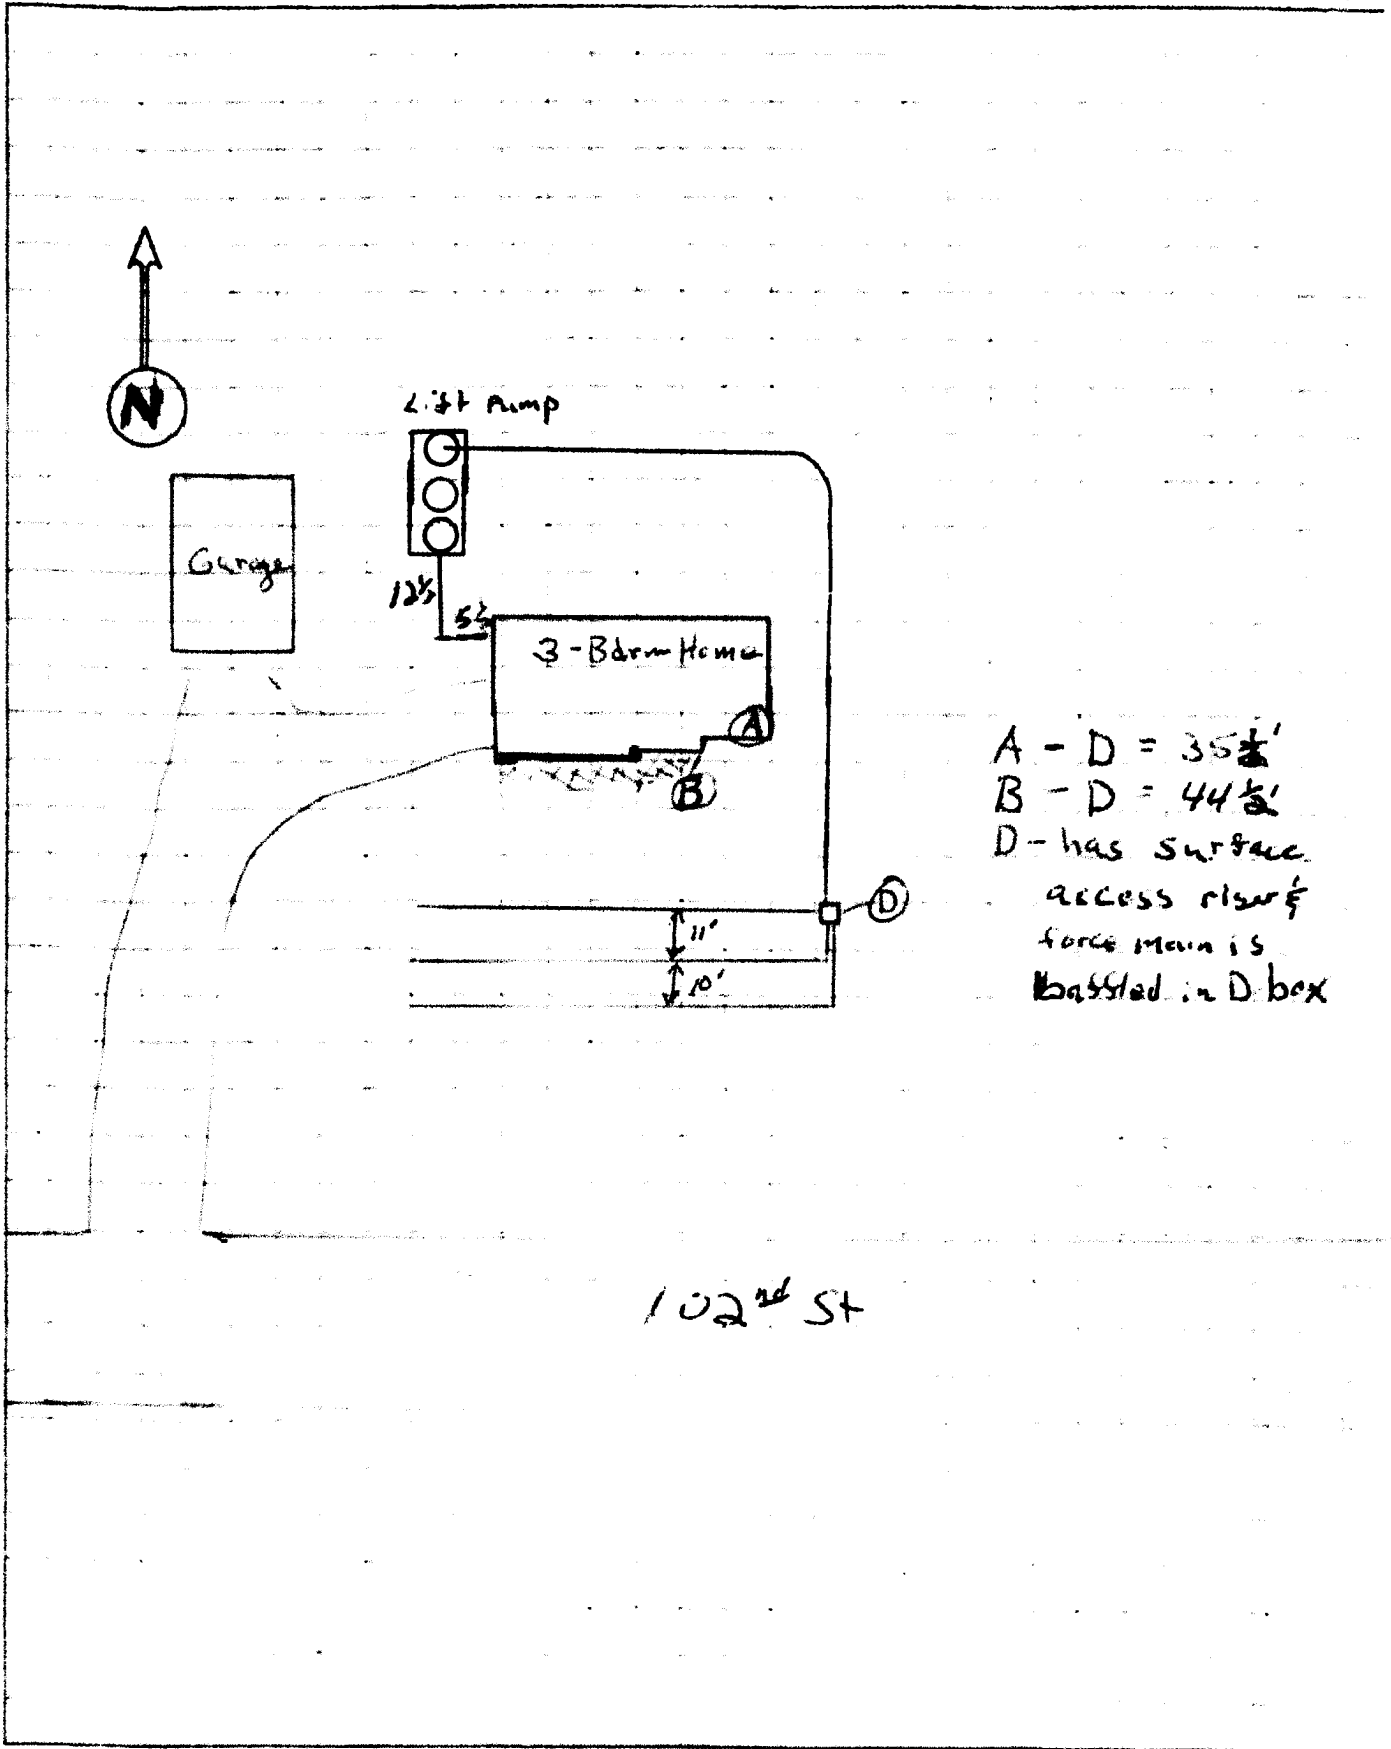 N
Lift Pump
Garage
12½
5½
3-Bdrm Home
A
B
A - D = 35½'
B - D = 44½'
D - has surface
access riser &
force main is
baffled in D box
D
11'
10'
102nd St